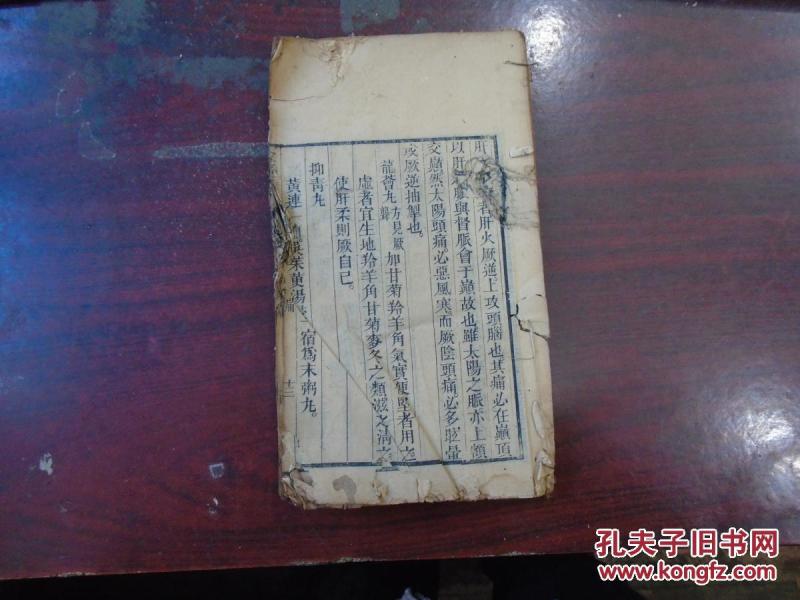 肝者肝火厥逆上攻頭腦也其痛必在巔頂
以肝與督脈會于巔故也雖太陽之脈亦上額
交巔然太陽頭痛必惡風寒而厥陰頭痛必多眩暈
或厥逆抽掣也。
龍薈丸 方見厥 加甘菊羚羊角氣實便堅者用之
虛者宜生地羚羊角甘菊麥冬之類滋之清之
使肝柔則厥自已。
抑青丸
黃連 吳茱萸湯 宿為末粥丸。
十二
孔夫子旧书网
www.kongfz.com